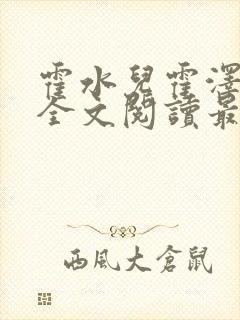 霍水兒霍澤
全文閱讀最
西風大倉鼠